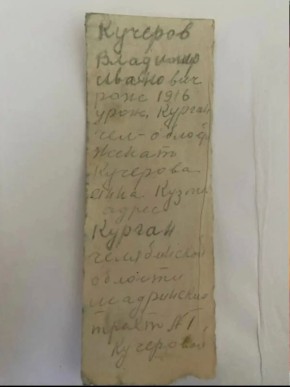 Кучеров
Владимир
Иванович
рож 1916
урож. Курган
чел-облас
женат
Кучерова
Кузми
адрес
Курган
челябинской
области
шадринский
тракт №1
Кучеровой